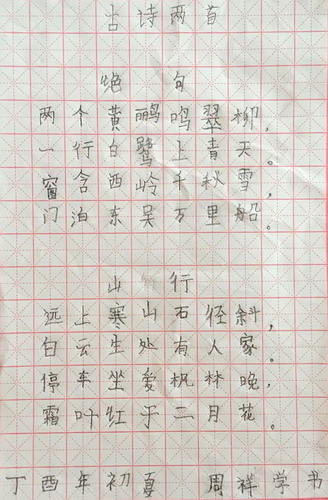 古诗两首
绝句
两个黄鹂鸣翠柳，
一行白鹭上青天。
窗含西岭千秋雪，
门泊东吴万里船。
山行
远上寒山石径斜，
白云生处有人家。
停车坐爱枫林晚，
霜叶红于二月花。
丁酉年初夏 周祥学书